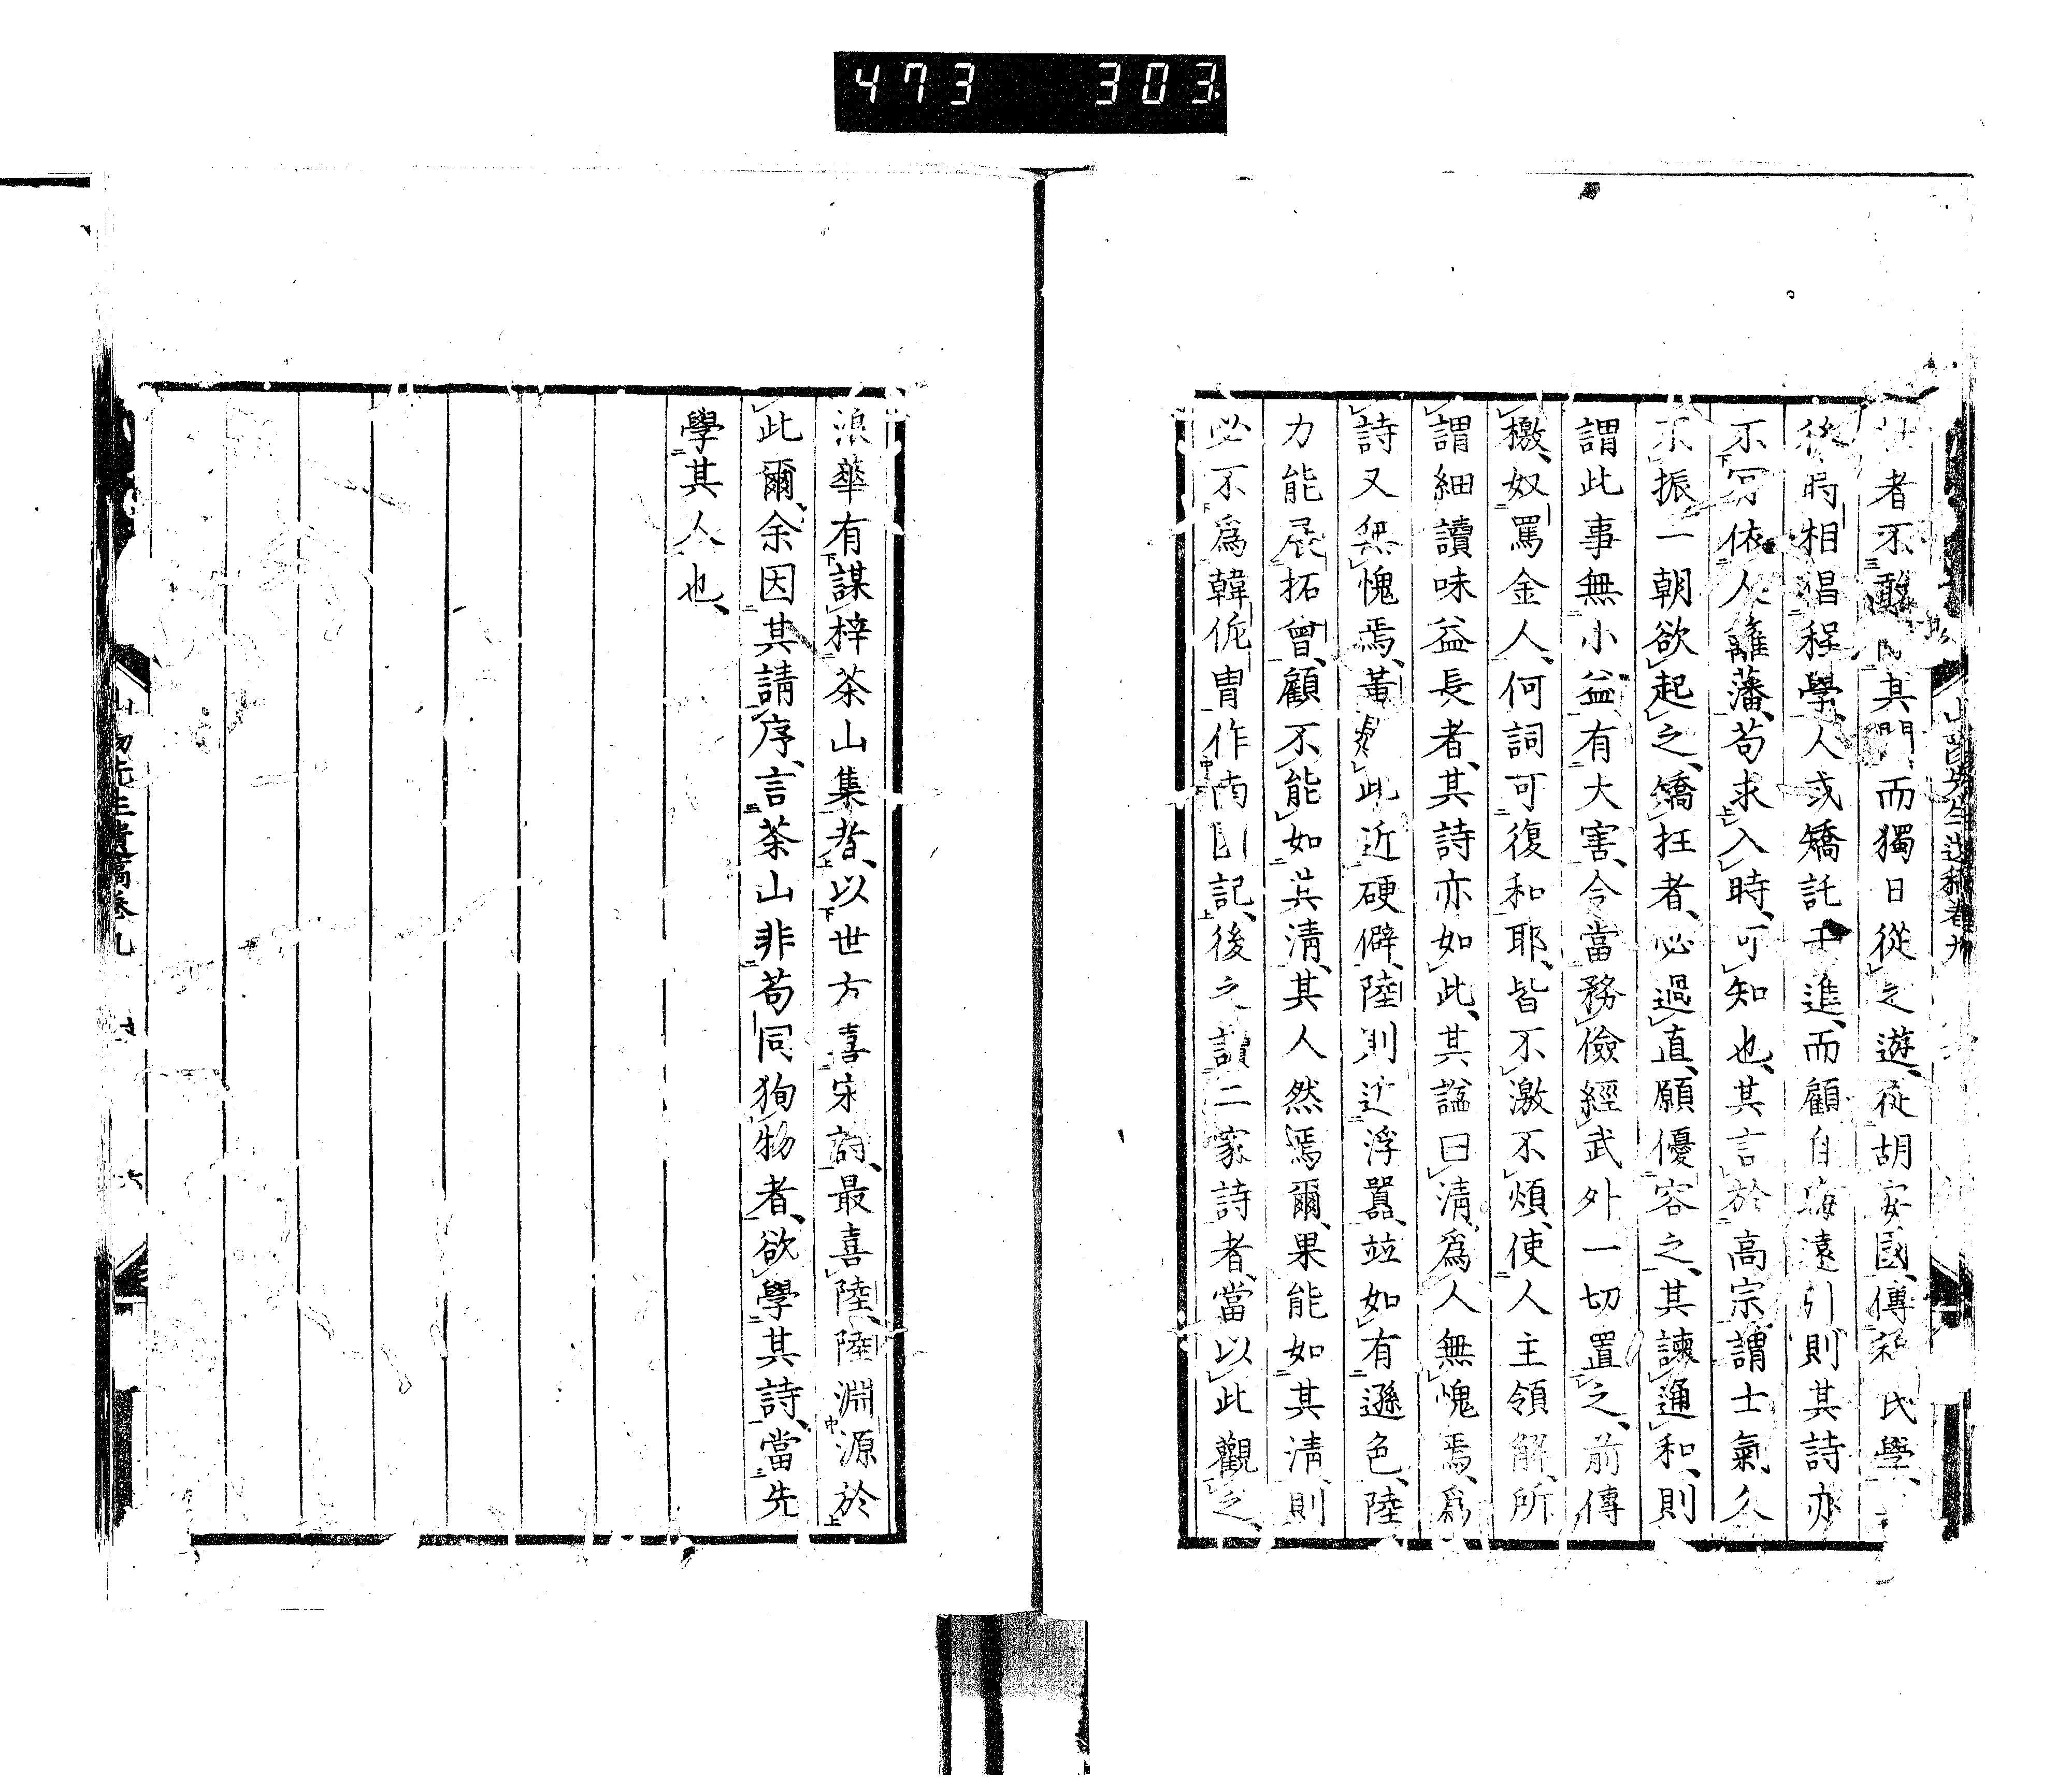 473 303
者不敢 其門而獨日從之遊從胡安國傳 氏學
後時相倡程學人或矯託干進而顧自晦遠引則其詩亦
不 依人籬藩苟求入時可知也其言於高宗謂士氣久
不振一朝欲起之矯抂者必過直願優容之其諫通和則
謂此事無小益有大害今當務儉經武外一切置之前傳
檄奴罵金人何詞可復和耶皆不激不煩使人主領解所
謂細讀味益長者其詩亦如此其謚曰清爲人無愧焉爲
詩又無愧焉黃 此近硬僻陸則近浮囂竝如有遜色陸
力能展拓曾顧不能如其清其人然焉爾果能如其清則
必不爲韓侂冑作南園記後之讀二家詩者當以此觀之
浪華有謀梓茶山集者以世方喜宋詩最喜陸陸淵源於
此爾余因其請序言茶山非苟同狥物者欲學其詩當先
學其人也
山陽先生遺稿卷九
六